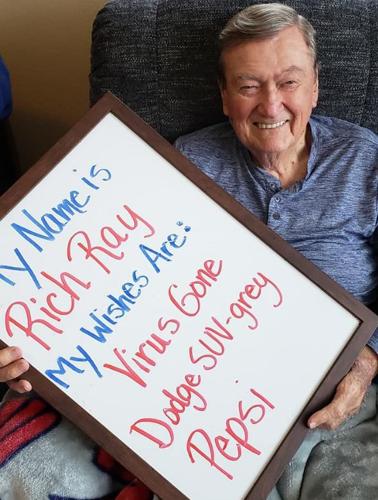 My Name is
Rich Ray
My Wishes Are:
Virus Gone
Dodge SUV-grey
Pepsi